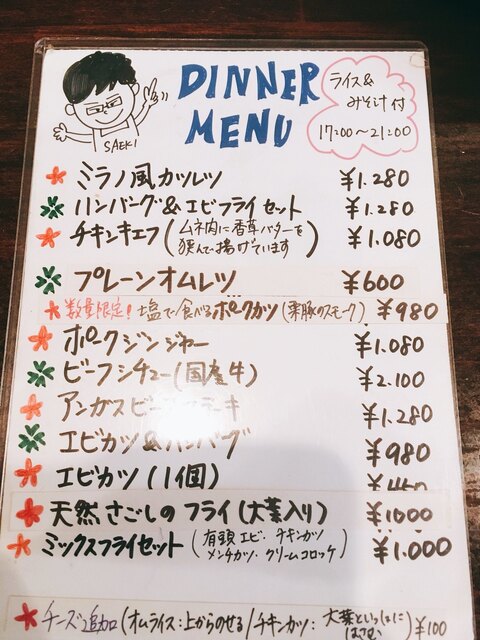 DINNER
MENU
ライス&
みそ汁付
17:00〜21:00
SAEKI
ミラノ風カツレツ ¥1.280
ハンバーグ&エビフライセット ¥1.280
チキンキエフ(ムネ肉に香草バターを挟んで揚げています) ¥1.080
プレーンオムレツ ¥600
数量限定!塩で食べるポークカツ(栗豚のスモーク) ¥980
ポークジンジャー ¥1.080
ビーフシチュー(国産牛) ¥2.100
アンガスビーフステーキ ¥1.280
エビカツ&ハンバーグ ¥980
エビカツ(1個)
天然さごしのフライ(大葉入り) ¥1000
ミックスフライセット(有頭エビ・チキンカツ メンチカツ・クリームコロッケ) ¥1.000
チーズ追加(オムライス:上からのせる/チキンカツ:大葉といっしょに はさむ) ¥100